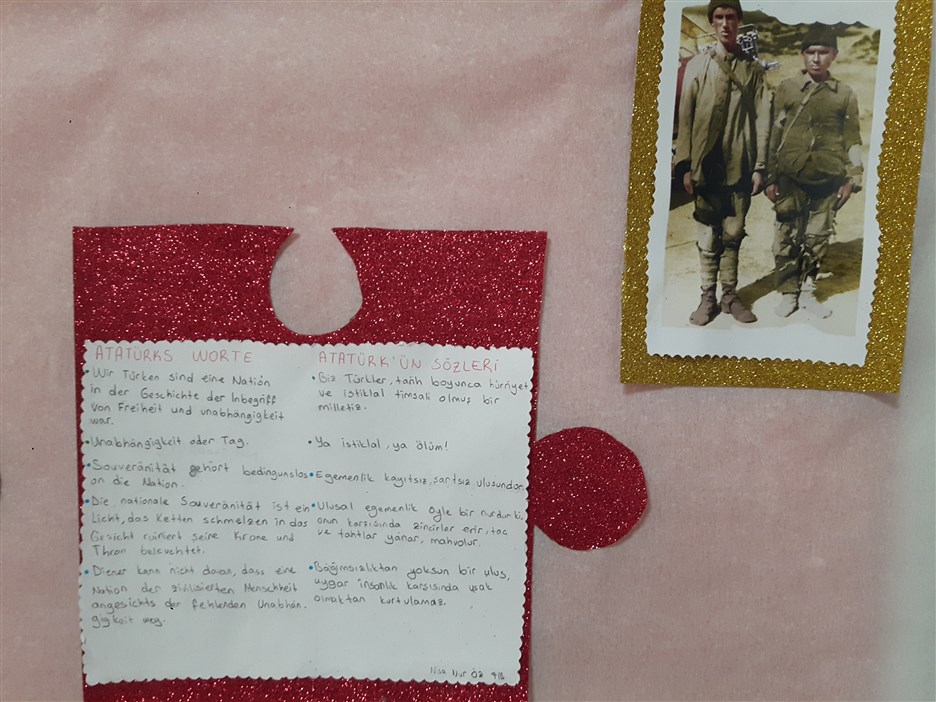 ATATÜRKS WORTE
• Wir Türken sind eine Nation
in der Geschichte der Inbegriff
von Freiheit und unabhängigkeit
war.
• Unabhängigkeit oder Tag.
• Souveränität gehört bedingunslos
an die Nation.
• Die nationale Souveränität ist ein
Licht, das Ketten schmelzen in das
Gesicht ruiniert seine Krone und
Thron beleuchtet.
• Diener kann nicht daran, dass eine
Nation der zivilisierten Menschheit
angesichts der fehlenden Unabhän-
gigkeit weg.
ATATÜRK'ÜN SÖZLERİ
• Biz Türkler, tarih boyunca hürriyet
ve istiklal timsali olmuş bir
milletiz.
• Ya istiklal, ya ölüm!
• Egemenlik kayıtsız, şartsız ulusundur.
• Ulusal egemenlik öyle bir nurdur ki,
onun karşısında zincirler erir, taç
ve tahtlar yanar, mahvolur.
• Bağımsızlıktan yoksun bir ulus,
uygar insanlık karşısında uşak
olmaktan kurtulamaz.
Nisa Nur Öz